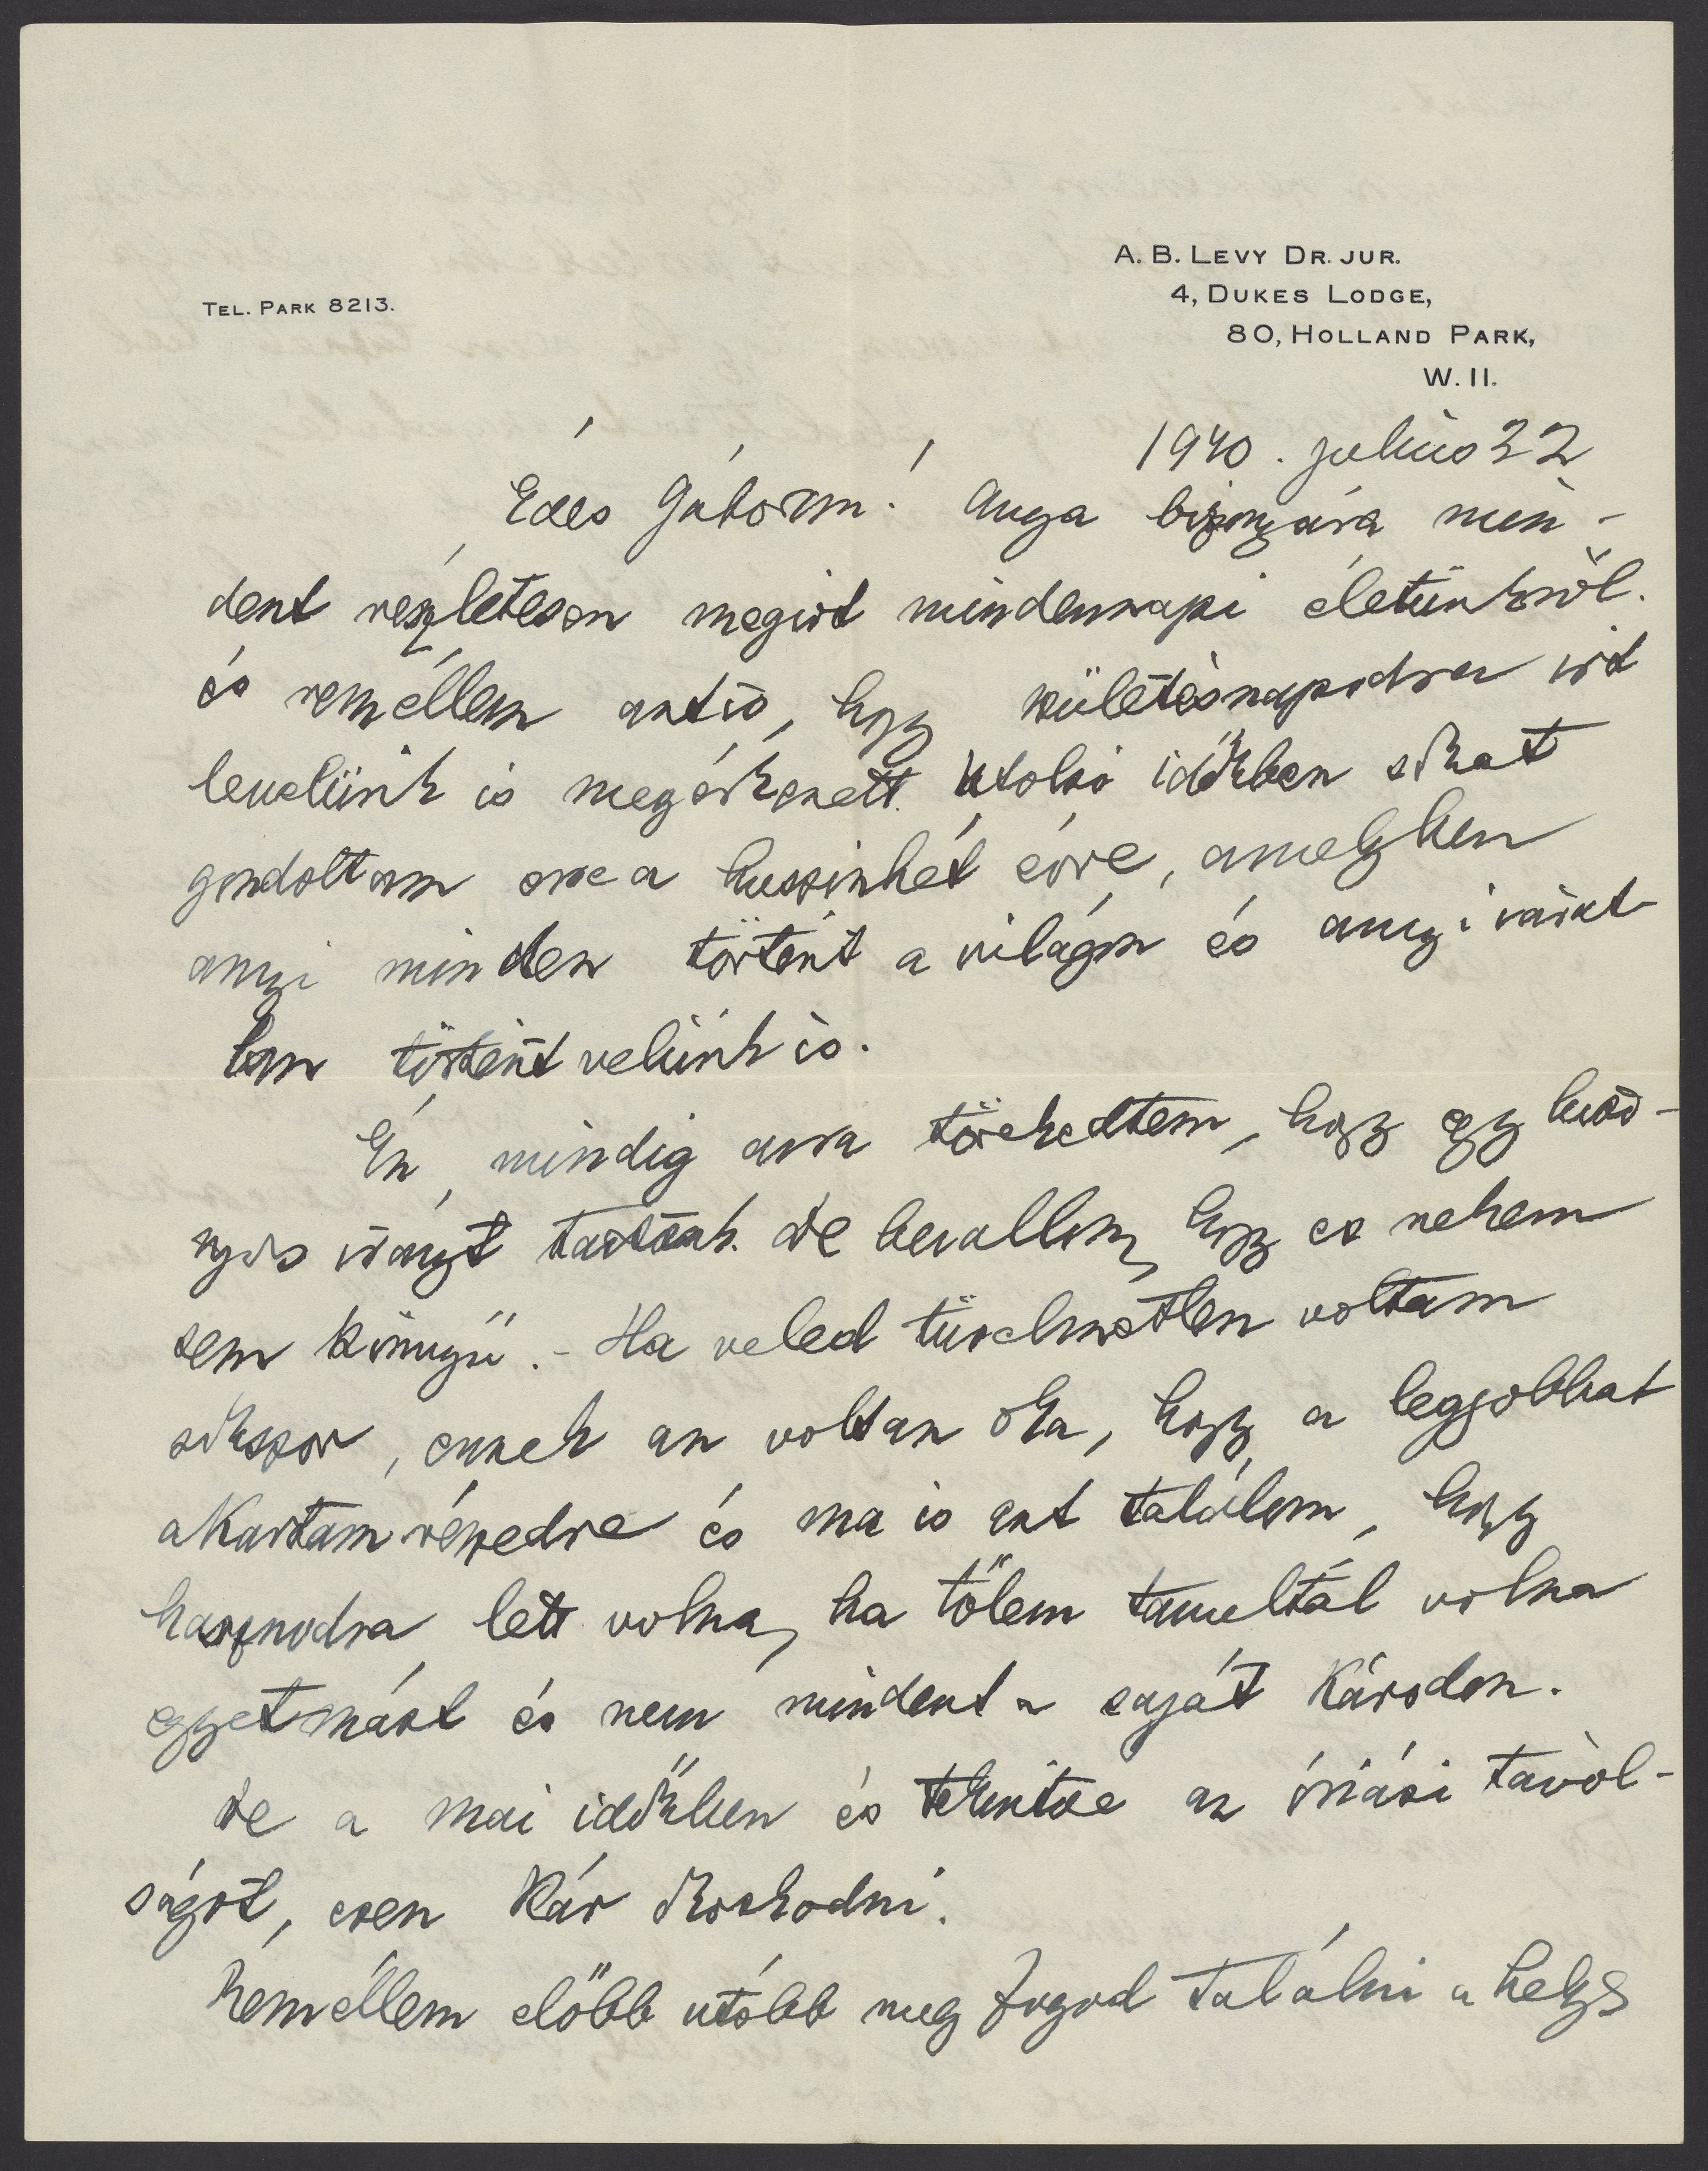 A. B. LEVY DR. JUR.
4, DUKES LODGE,
80, HOLLAND PARK,
W. 11.
TEL. PARK 8213.
1940. julius 22
Édes Gáborom! Anya bizonyára min-
dent részletesen megirt mindennapi életünkröl.
és remélem azt is, hogy születésnapodra irt
levelünk is megérkezett. Utolsó időkben sokat
gondoltam erre a huszonhét évre, amelyben
annyi minden történt a világon és annyi várat-
lan történt velünk is.
Én mindig arra törekedtem, hogy egy bizo-
nyos irányt tartsak. de bevallom, hogy ez nekem
sem könnyü. - Ha veled türelmetlen voltam
sokszor, ennek az volt az oka, hogy a legjobbat
akartam részedre és ma is azt találom, hogy
hasznodra lett volna, ha tőlem tanultál volna
egyetmást és nem mindent a saját károdon.
de a mai időkben és tekintve az óriási távol-
ságot, ezen kár okoskodni.
Remélem előbb utóbb meg fogod találni a helyes